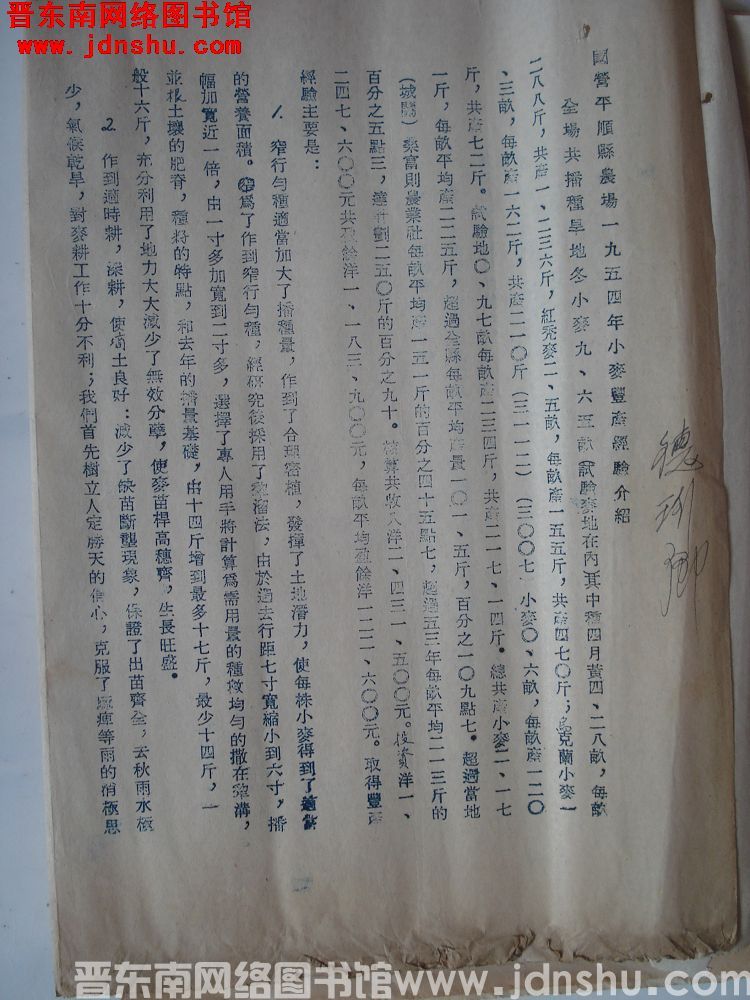 晋东南网络图书馆
www.jdnshu.com
國營平順縣農場一九五四年小麥豐產經驗介紹
全場共播種旱地冬小麥九、六五畝(試驗麥地在內其中種四月黃四、二八畝,每畝
二八八斤,共產一、二三六斤,紅禿麥二、五畝,每畝產一五五斤,共產四七〇斤;烏克蘭小麥一
、三畝,每畝產一六二斤,共產二一〇斤(三一一二)(三〇〇七)小麥〇、六畝,每畝產一二〇
斤,共產七二斤。試驗地〇、九七畝每畝產二三四斤,共產二一七、一四斤。總共產小麥二、一七
一斤,每畝平均產二二五斤,超過全縣每畝平均產量一〇一、五斤,百分之一〇九點七。超過當地
(城關)桑富則農業社每畝平均產一五一斤的百分之四十五點七,超過五三年每畝平均二一三斤的
百分之五點三,達計劃二五〇斤的百分之九十。核算共收入洋二、四三一、五〇〇元。投資洋一、
二四七、六〇〇元共盈餘洋一、一八三、九〇〇元,每畝平均盈餘洋一二二、六〇〇元。取得豐產
經驗主要是:
1. 窄行勻種適當加大了播種量,作到了合理密植,發揮了土地潛力,使每株小麥得到了適當
的營養面積。爲了作到窄行勻種,經研究後採用了犂溜法,由於過去行距七寸寬縮小到六寸,播
幅加寬近一倍,由一寸多加寬到二寸多,選擇了專人用手將計算爲需用量的種籽均勻的撒在犂溝,
並根土壤的肥脊,種籽的特點,和去年的播量基礎,由十四斤增到最多十七斤,最少十四斤,一
般十六斤,充分利用了地力大大減少了無效分孽,使麥苗桿高穗齊,生長旺盛。
2. 作到適時耕,深耕,使墒土良好:減少了缺苗斷壟現象,保證了出苗齊全,去秋雨水極
少,氣候乾旱,對麥耕工作十分不利;我們首先樹立人定勝天的信心,克服了麻痺等雨的消極思
晋东南网络图书馆 www.jdnshu.com